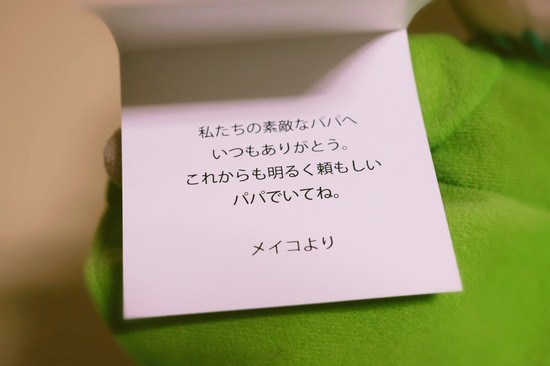 私たちの素敵なパパへ
いつもありがとう。
これからも明るく頼もしい
パパでいてね。
メイコより